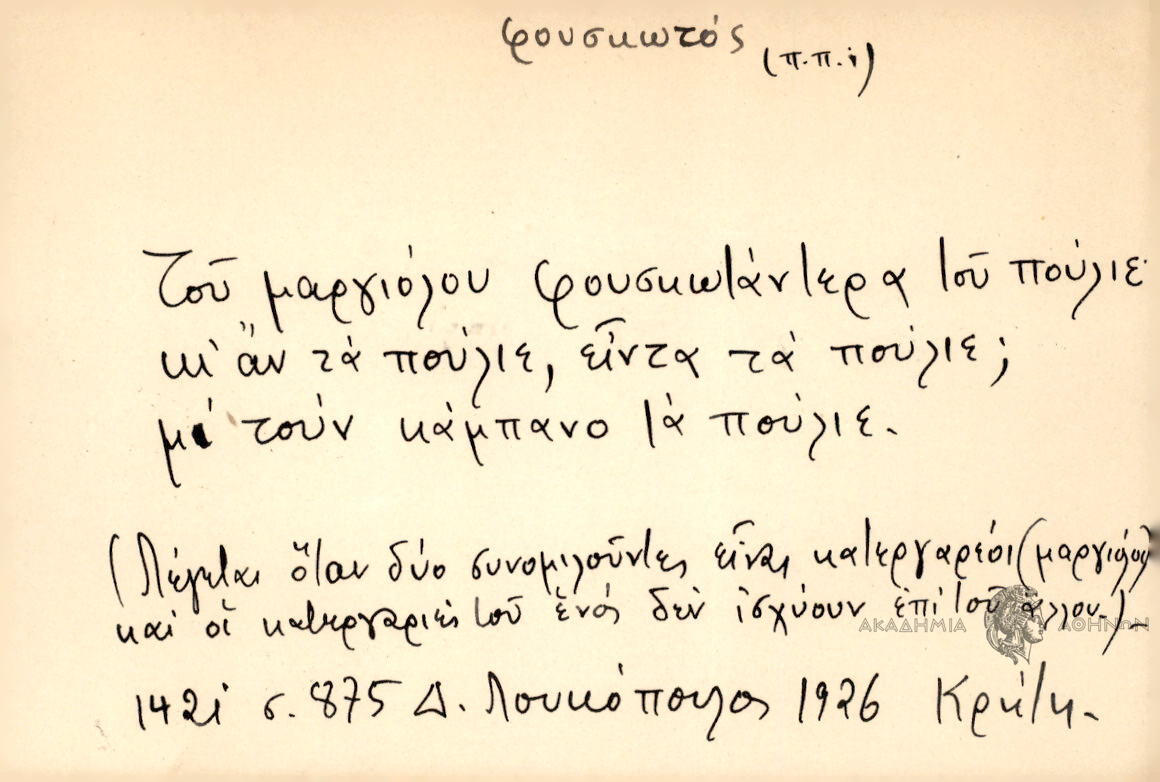 φουσκωτός
(π.π.ι)
Τοῦ μαργιόλου φουσκωτάντερα τοῦ πούλιε·
κι' ἄν τὰ πούλιε, εἶντα τὰ πούλιε;
μὲ τοὺν κάμπανο τὰ πούλιε.
(Λέγεται ὅταν δύο συνομιλοῦντες εἶναι κατεργαρέοι (μαργιόλοι)
καὶ οἱ κατεργαριὲς τοῦ ἑνός δὲν ἰσχύουν ἐπὶ τοῦ ἄλλου.)
ΑΚΑΔΗΜΙΑ ΑΘΗΝΩΝ
σ. 875 Δ. Λουκόπουλος 1926 Κρήτη.